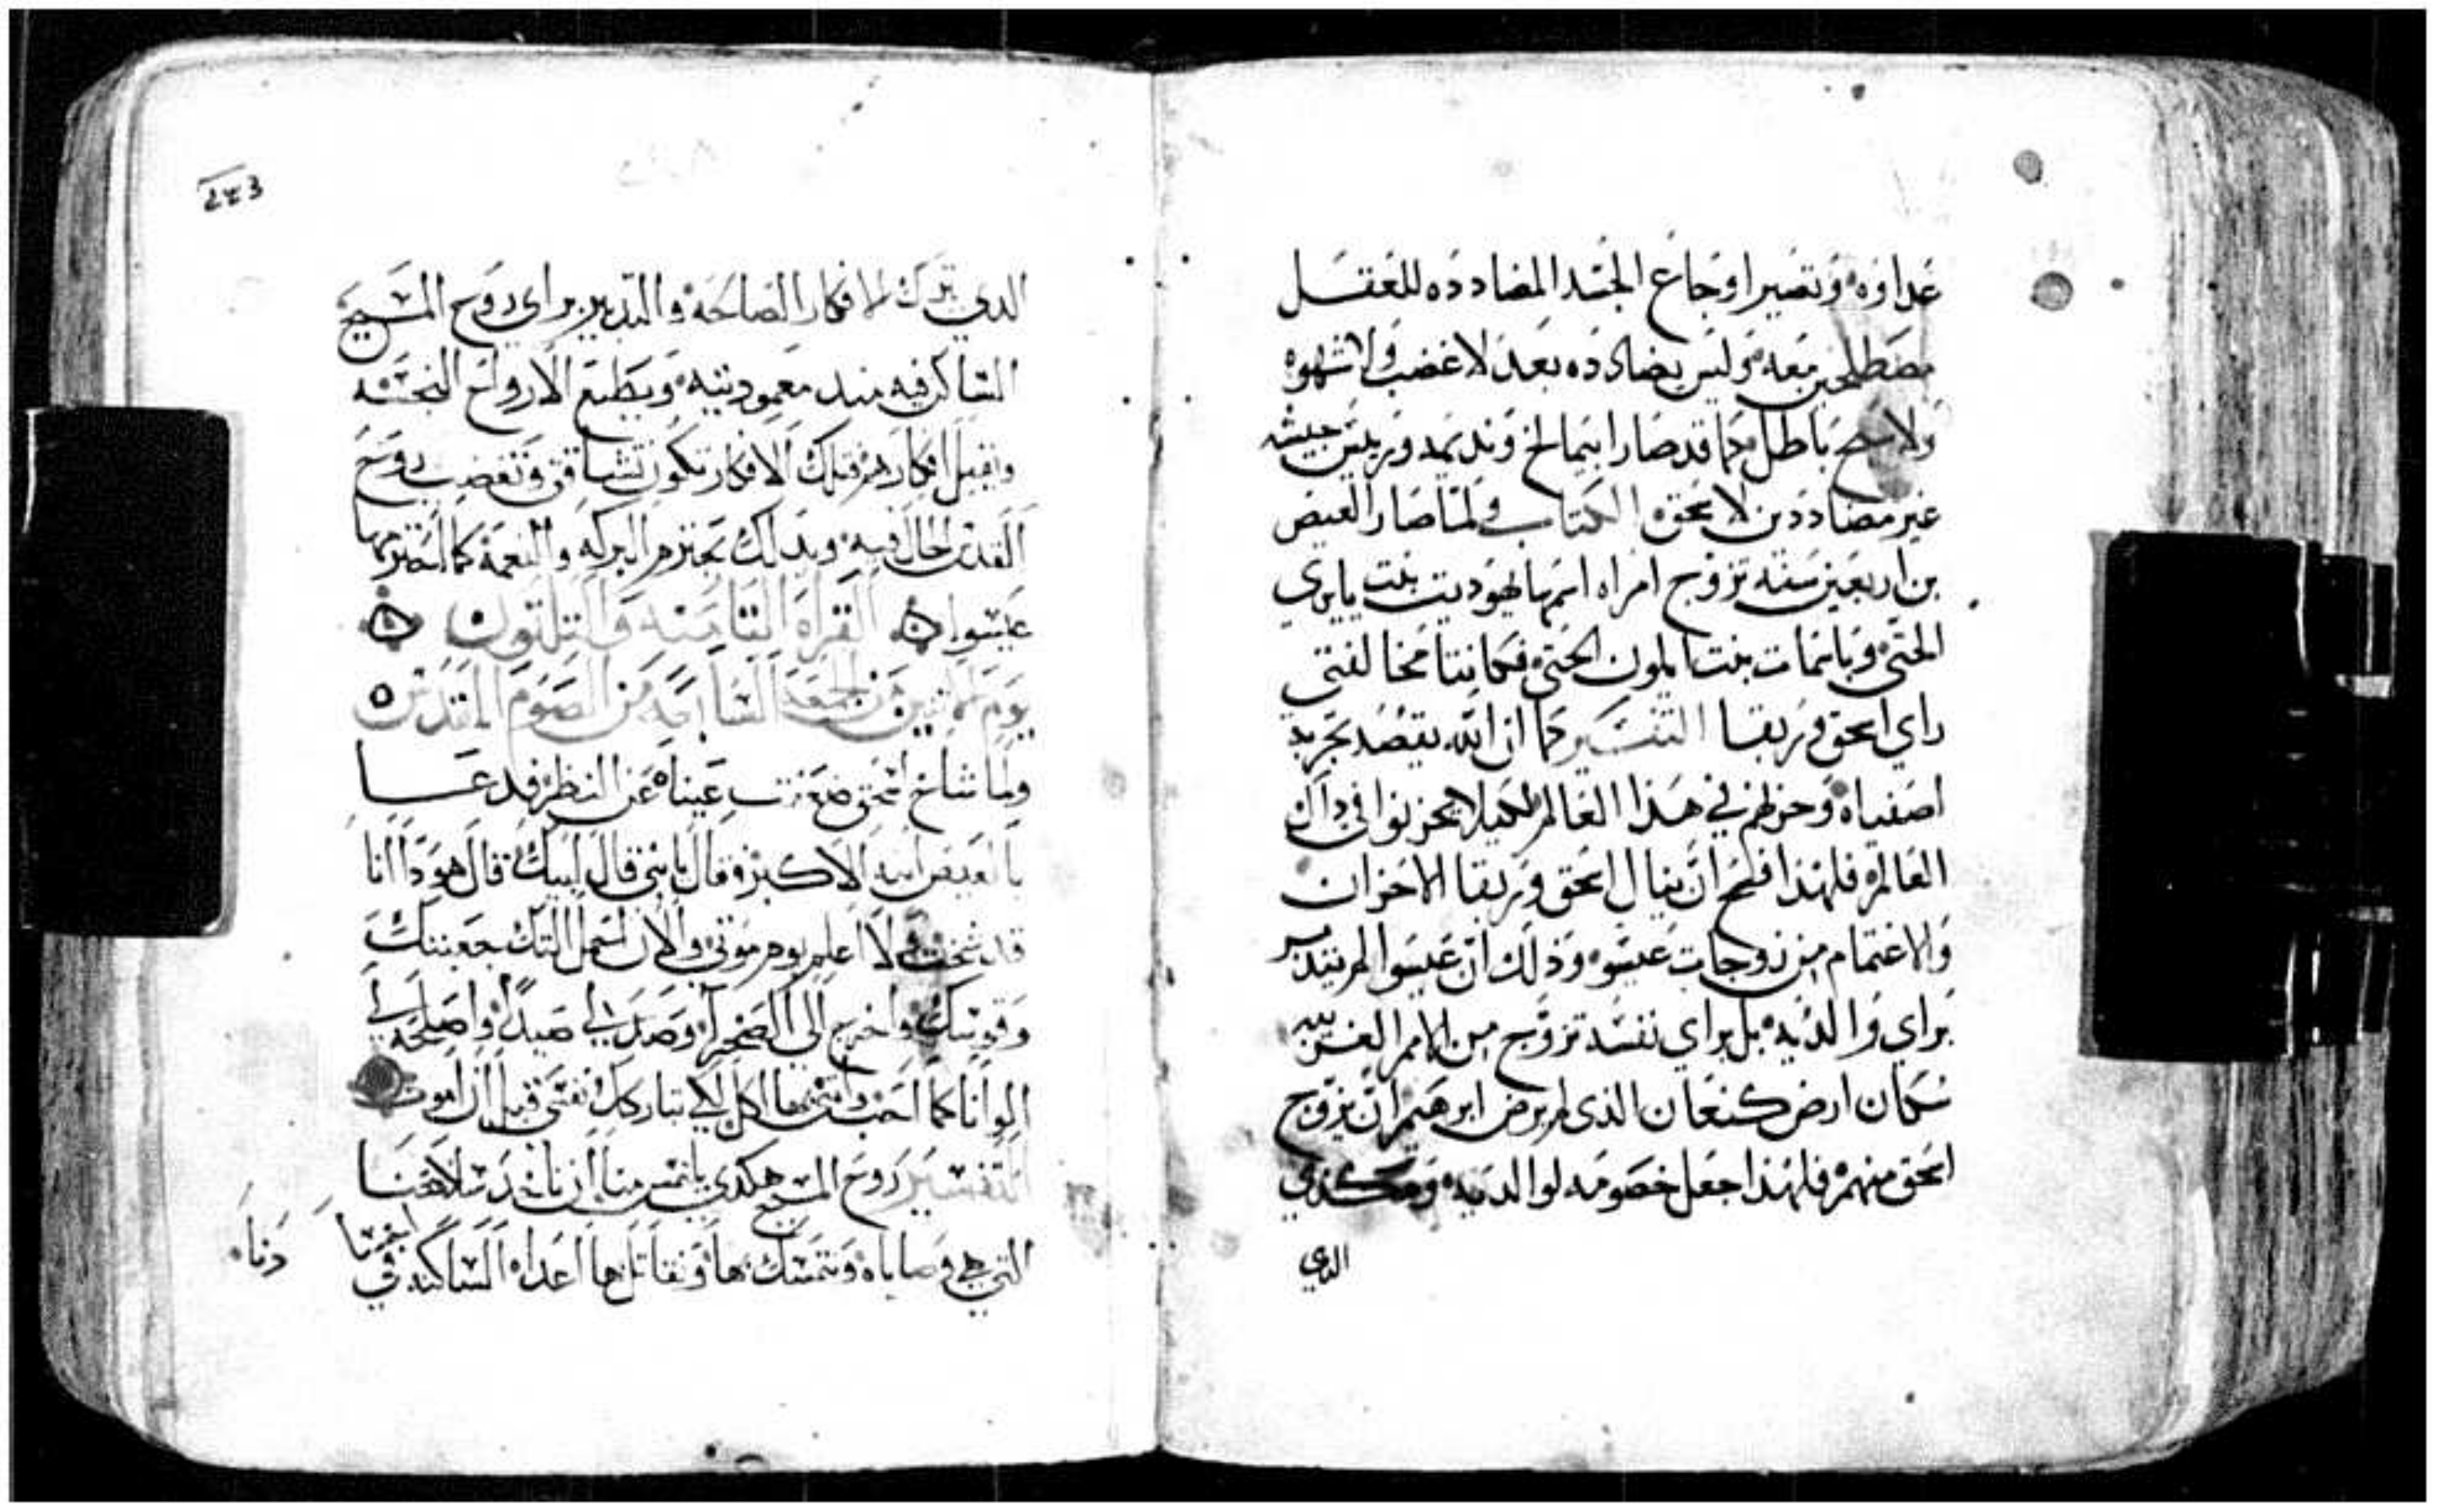 عداوه وتصير اوجاع الجسد المضادده للعقل
مصطلحين معه وليس يضادده بعد لا غضب ولا شهوه
ولا سبح باطل كما قد صار ابيمالخ ونديمه وريس جيشه
غير مضاددين لاسحق الكتاب ولما صار العيص
بن اربعين سنه تزوج امراه اسمها يهوديت بنت بايري
الحتي وباسمات بنت المون الحتي فكانتا مخالفتي
راي اسحق وربقا التفسير كما ان الله يقصد تجريد
اصفياه وحزنهم في هذا العالم لكيلا يحزنوا في داك
العالم فلهذا فسح ان ينال اسحق وربقا الاحزان
والاغتمام من زوجات عيسو وذلك ان عيسوا لم يتدبر
براي والديه بل براي نفسه تزوج من الامم الغريبه
سكان ارض كنعان الذي لم يرض ابرهيم ان يزوج
اسحق منهم فلهذا جعل خصومه لوالديه وهكذي
الدي
٢٤٣
الدي يترك الافكار الصالحه والتدبير براي روح المسيح
الساكن فيه مند معموديته ويطيع الارواح النجسه
ويقبل افكارهم فتلك الافكار تكون تشاقق وتغضب روح
القدس الحال فيه وبدلك يخسر البركه والنعمة كما خسرها
عيسوا القراه الثامنه والتلتون
يوم الاثنين من الجمعه السابعه من الصوم المقدس
ولما شاخ اسحق ضعفت عيناه عن النظر فدعا
بالعيص ابنه الاكبر وقال يا بني قال لبيك قال هودا انا
قد شخت ولا اعلم يوم موتي والان احمل التك جعبتك
وقوسك واخرج الى الصحرا وصد لي صيدا واصلحه لي
الوانا كما احب واتيني بها اكل لكي تباركك نفسي قبل ان اموت
التفسير روح المسيح هكدي يلتمس منا ان ناخد سلاحنا
التي هي وصاياه ونتمسك بها ونقاتل بها اعداه الساكنه في انفسنا
دنا